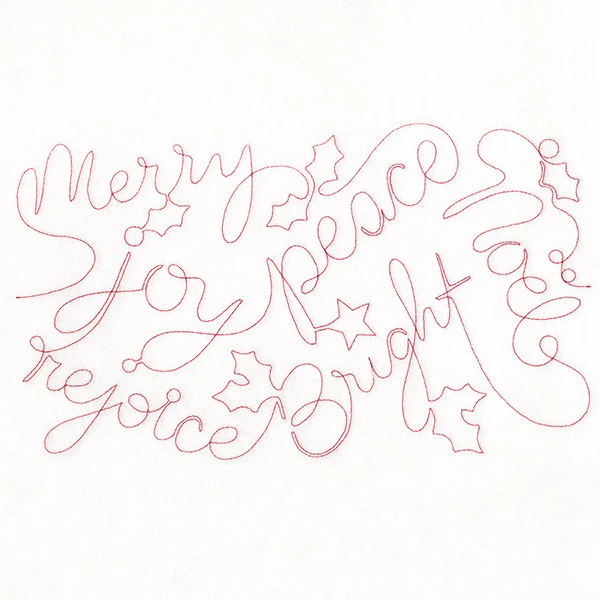 Merry peace
joy Noel
rejoice Bright